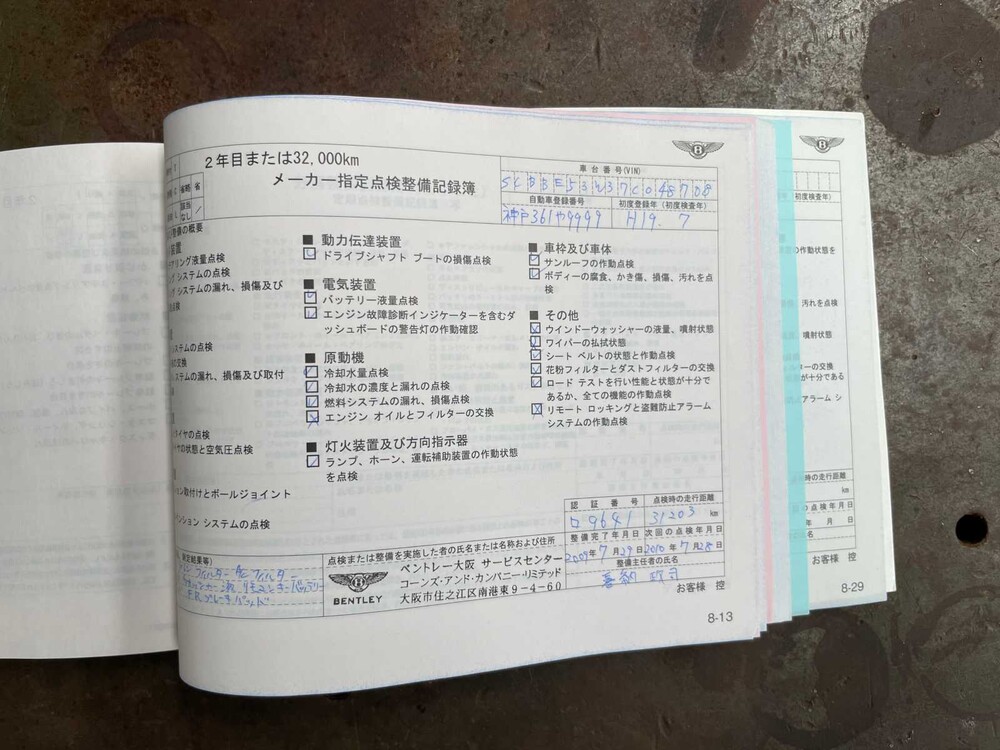 2年目または32,000km
メーカー指定点検整備記録簿
車台番号(VIN)
SCBBE53W37C048708
自動車登録番号
初度登録年（初度検査年）
神戸361や9999
H19. 7
整備の概要
装置
アリング液量点検
システムの点検
システムの漏れ、損傷及び
点検
ステムの点検
の交換
ステムの漏れ、損傷及び取付
タイヤの点検
ヤの状態と空気圧点検
ョン取付けとボールジョイント
ペンション システムの点検
■ 動力伝達装置
ドライブシャフト ブートの損傷点検
■ 電気装置
バッテリー液量点検
エンジン故障診断インジケーターを含むダ
ッシュボードの警告灯の作動確認
■ 原動機
冷却水量点検
冷却水の濃度と漏れの点検
燃料システムの漏れ、損傷点検
エンジン オイルとフィルターの交換
■ 灯火装置及び方向指示器
ランプ、ホーン、運転補助装置の作動状態
を点検
■ 車枠及び車体
サンルーフの作動点検
ボディーの腐食、かき傷、損傷、汚れを点
検
■ その他
ウインドーウォッシャーの液量、噴射状態
ワイパーの払拭状態
シート ベルトの状態と作動点検
花粉フィルターとダストフィルターの交換
ロード テストを行い性能と状態が十分で
あるか、全ての機能の作動点検
リモート ロッキングと盗難防止アラーム
システムの作動点検
認証番号
点検時の走行距離
ロ9641
31203 km
整備完了年月日
次回の点検年月日
2009年7月29日
2010年7月28日
整備主任者の氏名
測定結果等)
点検または整備を実施した者の氏名または名称および住所
BENTLEY
ベントレー大阪 サービスセンター
コーンズ・アンド・カンパニー・リミテッド
大阪市住之江区南港東9-4-60
お客様 控
8-13
初度検査年)
の作動状態を
汚れを点検
噴射状態
ーの交換
が十分である
アラーム シ
時の走行距離
km
の点検年月日
年 月 日
氏名
お客様 控
8-29